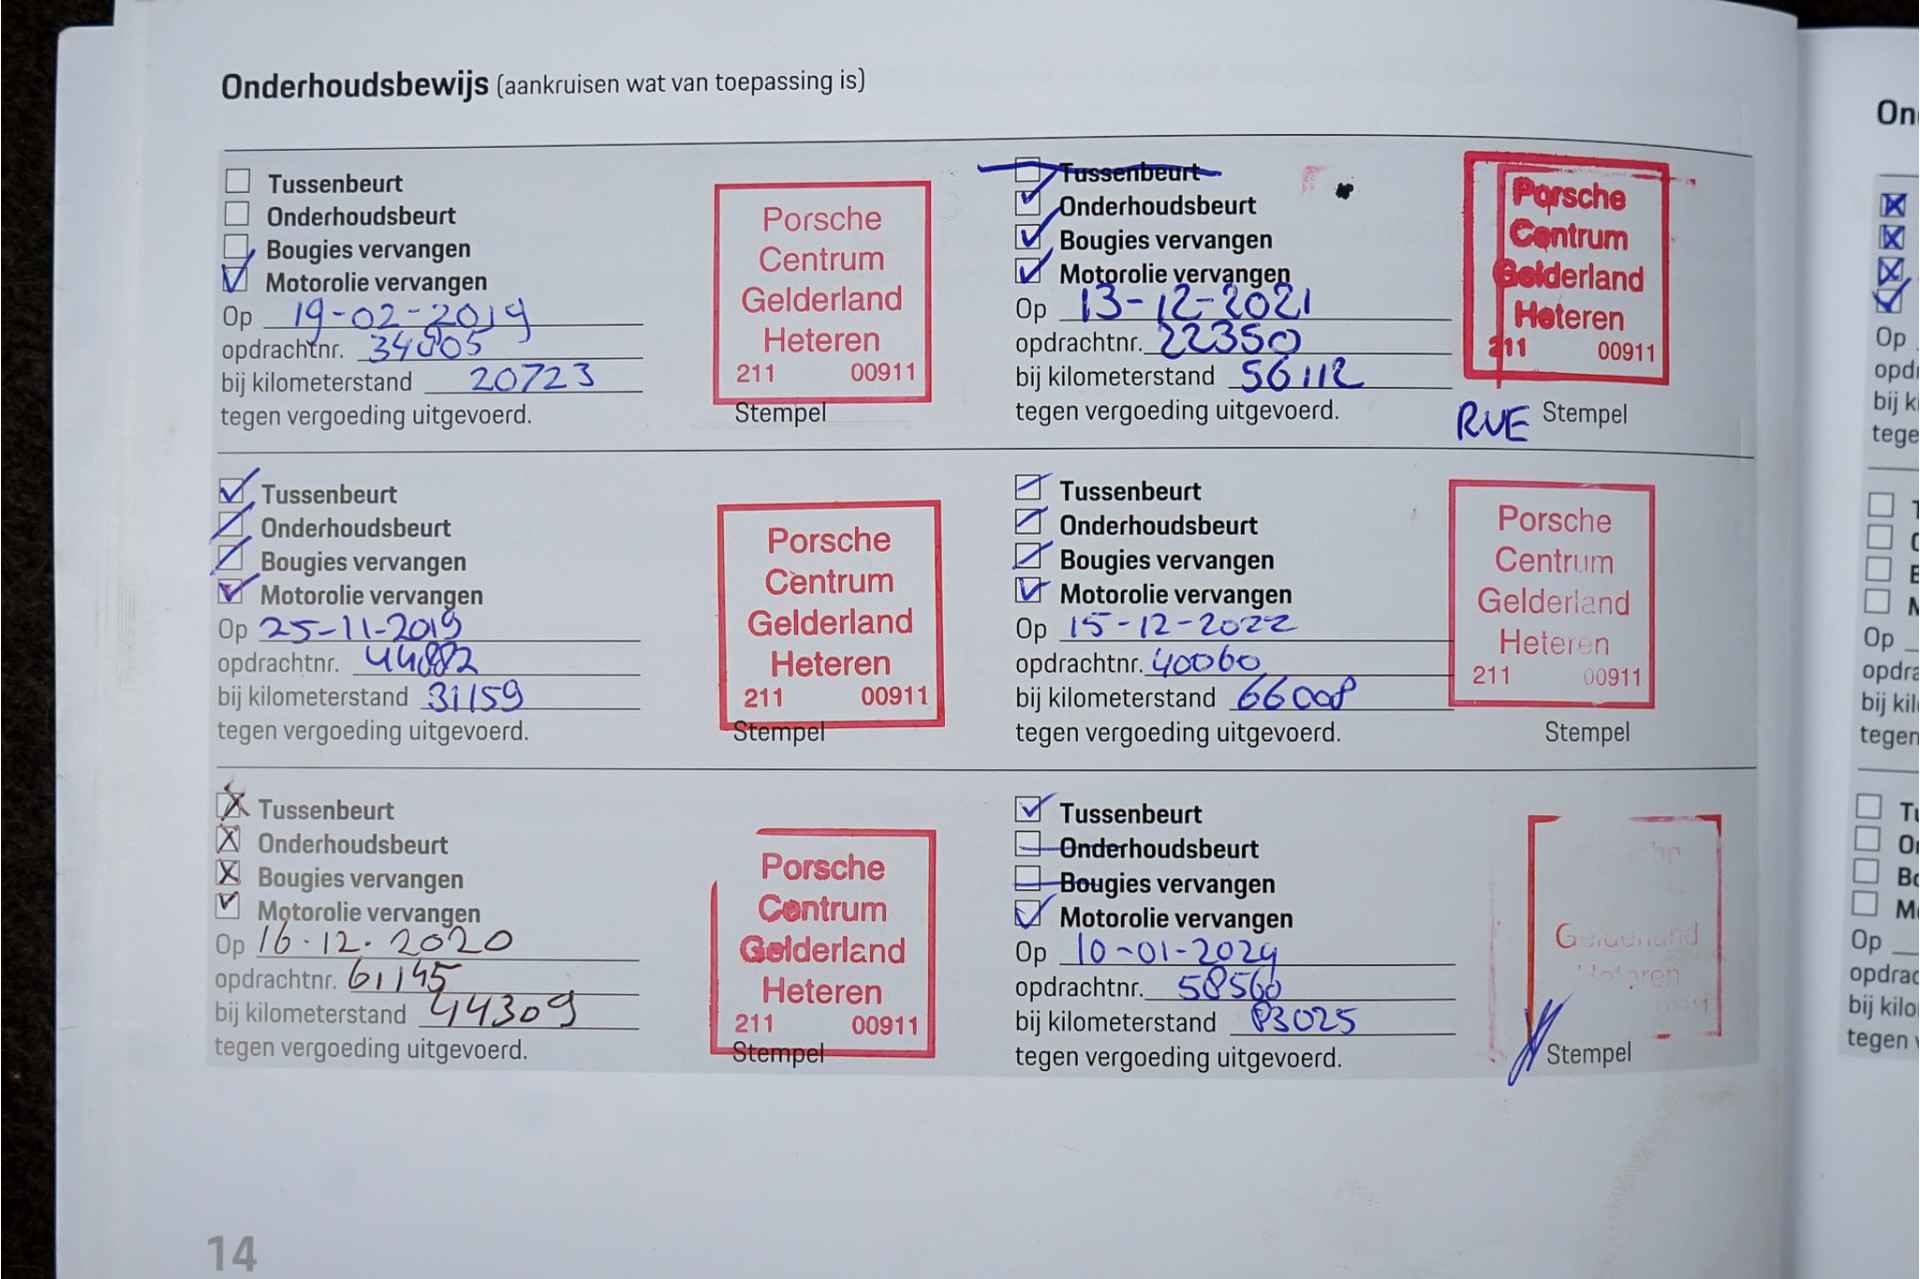 Onderhoudsbewijs (aankruisen wat van toepassing is)
Tussenbeurt
Onderhoudsbeurt
Bougies vervangen
Motorolie vervangen
Op 19-02-2019
opdrachtnr. 34005
bij kilometerstand 20723
tegen vergoeding uitgevoerd.
Porsche
Centrum
Gelderland
Heteren
211 00911
Stempel
Tussenbeurt
Onderhoudsbeurt
Bougies vervangen
Motorolie vervangen
Op 25-11-2019
opdrachtnr. 44882
bij kilometerstand 31159
tegen vergoeding uitgevoerd.
Porsche
Centrum
Gelderland
Heteren
211 00911
Stempel
Tussenbeurt
Onderhoudsbeurt
Bougies vervangen
Motorolie vervangen
Op 16.12.2020
opdrachtnr. 61145
bij kilometerstand 44309
tegen vergoeding uitgevoerd.
Porsche
Centrum
Gelderland
Heteren
211 00911
Stempel
Tussenbeurt
Onderhoudsbeurt
Bougies vervangen
Motorolie vervangen
Op 13-12-2021
opdrachtnr. 22350
bij kilometerstand 56112
tegen vergoeding uitgevoerd.
Porsche
Centrum
Gelderland
Heteren
211 00911
RVE Stempel
Tussenbeurt
Onderhoudsbeurt
Bougies vervangen
Motorolie vervangen
Op 15-12-2022
opdrachtnr. 40060
bij kilometerstand 66008
tegen vergoeding uitgevoerd.
Porsche
Centrum
Gelderland
Heteren
211 00911
Stempel
Tussenbeurt
Onderhoudsbeurt
Bougies vervangen
Motorolie vervangen
Op 10-01-2024
opdrachtnr. 58560
bij kilometerstand 83025
tegen vergoeding uitgevoerd.
Gelderland
Heteren
Stempel
14
Op
Op
Op